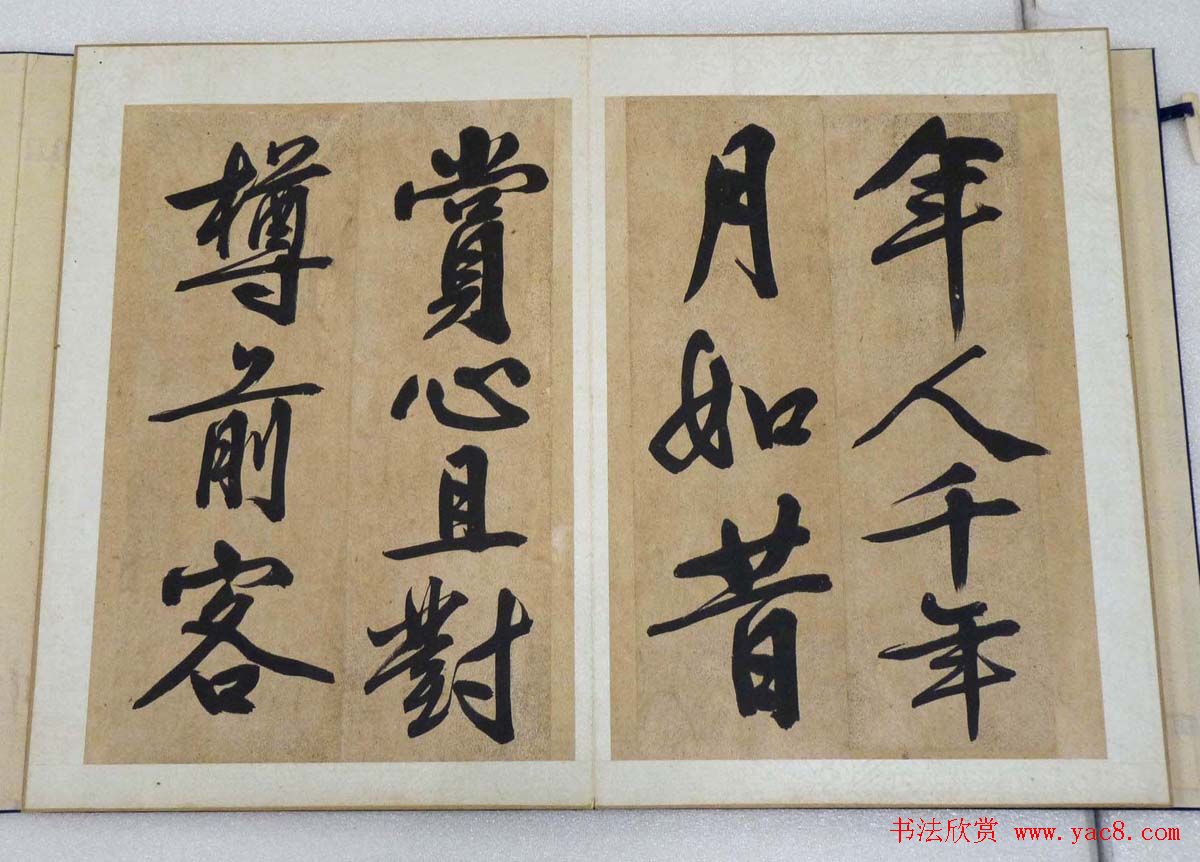 年人千年
月如昔
賞心且對
樽前客
书法欣赏 www.yac8.com